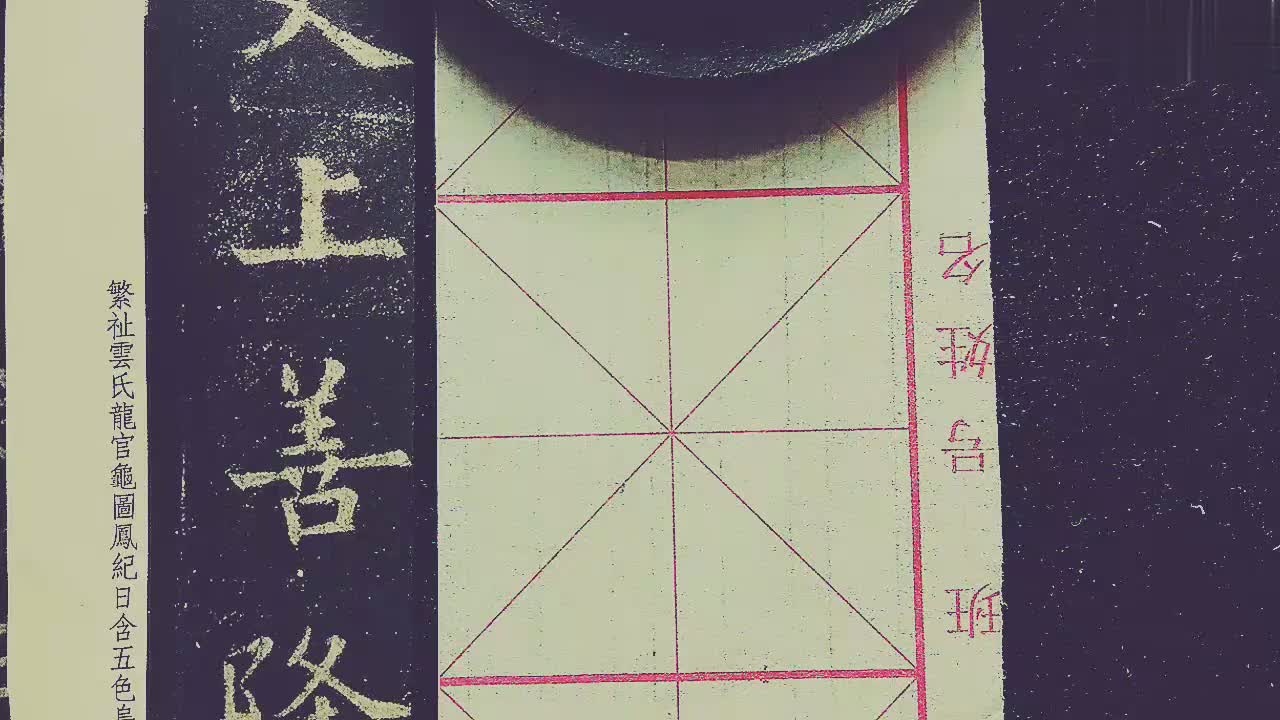 繁祉雲氏龍官龜圖鳳紀日含五色
上善降
班 号 姓名